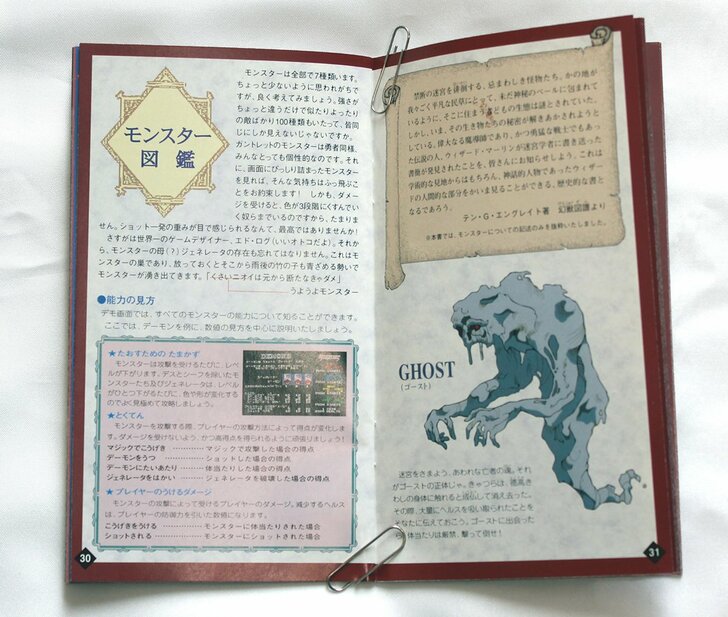 モンスター
図鑑
モンスターは全部で7種類います。
ちょっと少ないように思われがちで
すが、良く考えてみましょう。強さが
ちょっと違うだけで似たりよったり
の敵ばかり100種類もいたって、皆同
じにしか見えないじゃないですか。
ガントレットのモンスターは勇者同様、
みんなとっても個性的なのです。それ
に、画面にびっしり詰まったモンスター
を見れば、そんな気持ちはふっ飛ぶこ
とをお約束します! しかも、ダメー
ジを受けると、色が3段階にくすんでい
く奴らまでいるのですから、たまりま
せん。ショット一発の重みが目で感じられるなんて、最高ではありませんか!
さすがは世界一のゲームデザイナー、エド・ログ(いいオトコだよ)。それか
ら、モンスターの母(?)ジェネレータの存在も忘れてはなりません。これはモ
ンスターの巣であり、放っておくとそこから雨後の竹の子も青ざめる勢いで
モンスターが湧き出てきます。「くさいニオイは元から断たなきゃダメ」
うようよモンスター
●能力の見方
デモ画面では、すべてのモンスターの能力について知ることができます。
ここでは、デーモンを例に、数値の見方を中心に説明いたしましょう。
★たおすための たまかず
モンスターは攻撃を受けるたびに、レベ
ルが下がります。デスとシーフを除いたモ
ンスターたち及びジェネレータは、レベル
がひとつ下がるたびに、色や形が変化する
のでよく見極めて攻略しましょう。
★とくてん
モンスターを攻撃する際、プレイヤーの攻撃方法によって得点が変化しま
す。ダメージを受けないよう、かつ高得点を得られるように頑張りましょう!
マジックでこうげき ………… マジックで攻撃した場合の得点
デーモンをうつ ………… ショットした場合の得点
デーモンにたいあたり ……… 体当たりした場合の得点
ジェネレータをはかい ……… ジェネレータを破壊した場合の得点
★プレイヤーのうけるダメージ
モンスターの攻撃によって受けるプレイヤーのダメージ。減少するヘルス
は、プレイヤーの防御力を引いた数値になります。
こうげきをうける ………… モンスターに体当たりされた場合
ショットされる ………… モンスターにショットされた場合
30
禁断の迷宮を徘徊する、忌まわしき怪物たち。かの地が
我々ごく平凡な民草にとって、未だ神秘のベールに包まれて
いるように、そこに住まう者どもの生態は謎とされていた。
しかし、いま、その生き物たちの秘密が解きあかされようと
している。偉大なる魔導師であり、かつ勇猛な戦士でもあっ
た伝説の人、ウィザード・マーリンが迷宮学者に書き送った
書簡が発見されたことを、皆さんにお知らせしよう。これは
学術的な見地からはもちろん、神話的人物であったウィザー
ドの人間的な部分をかいま見ることができる、歴史的な書と
なるであろう。
テン・G・エングレイト著 幻獣図譜より
※本書では、モンスターについての記述のみを抜粋いたしました。
GHOST
(ゴースト)
迷宮をさまよう、あわれな亡者の魂。それ
がゴーストの正体じゃ。きゃつらは、徳高き
わしの身体に触れると成仏して消え去った。
その際、大量にヘルスを吸い取られたことを
そなたに伝えておこう。ゴーストに出会った
ら、体当たりは厳禁、撃って倒せ!
31